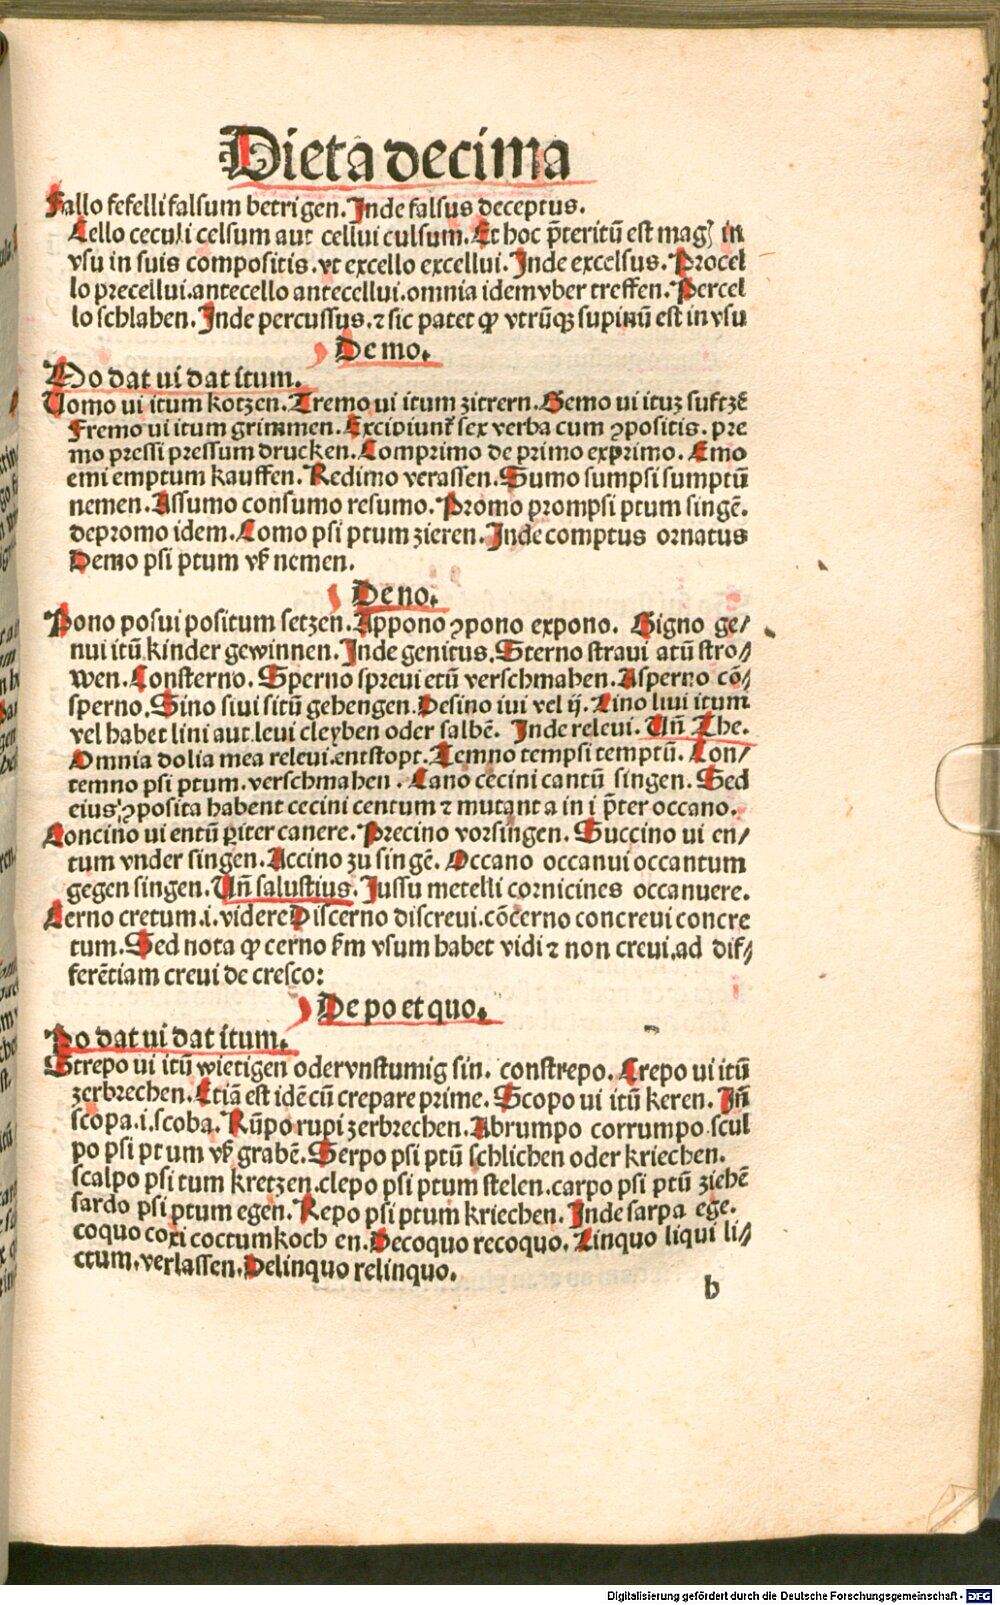 Dieta decima
Fallo fefelli falsum betrigen. Inde falsus deceptus.
Cello ceculi celsum aut cellui culsum. Et hoc p̄teritū est mag᷒ in
vsu in suis compositis. vt excello excellui. Inde excelsus. Procel
lo precellui. antecello antecellui. omnia idem vber treffen. Percel
lo schlahen. Inde percussus. ⁊ sic patet ꝙ vtrūqꝫ supinū est in vsu
De mo.
Mo dat ui dat itum.
Uomo ui itum kotzen. Tremo ui itum zitrern. Gemo ui ituꝫ suftzē
Fremo ui itum grimmen. Excipiunt᷑ sex verba cum ꝯpositis. pre
mo pressi pressum drucken. Comprimo de primo exprimo. Emo
emi emptum kauffen. Redimo verassen. Sumo sumpsi sumptū
nemen. Assumo consumo resumo. Promo prompsi ptum singē.
depromo idem. Como psi ptum zieren. Inde comptus ornatus
Demo psi ptum vß nemen.
De no.
Pono posui positum setzen. Appono ꝯpono expono. Gigno ge/
nui itū kinder gewinnen. Inde genitus. Sterno straui atū stro/
wen. Consterno. Sperno spreui etū verschmahen. Asperno cō/
sperno. Sino siui sitū gehengen. Desino iui vel ij. Lino liui itum
vel habet lini aut leui cleyben oder salbē. Inde releui. Un̄ The.
Omnia dolia mea releui. entstopt. Temno tempsi temptū. Con/
temno psi ptum. verschmahen. Cano cecini cantū singen. Sed
eius ꝯposita habent cecini centum ⁊ mutant a in i p̄ter occano.
Concino ui entū pariter canere. Precino vorsingen. Succino ui en/
tum vnder singen. Accino zu singē. Occano occanui occantum
gegen singen. Un̄ salustius. Jussu metelli cornicines occanuere.
Cerno cretum. i. videre Discerno discreui. cōcerno concreui concre
tum. Sed nota ꝙ cerno k̄m vsum habet vidi ⁊ non creui. ad dif/
ferētiam creui de cresco:
De po et quo.
Po dat ui dat itum.
Strepo ui itū wietigen oder vnstumig sin. constrepo. Crepo ui itū
zerbrechen. Etiā est idē cū crepare prime. Scopo ui itū keren. In̄
scopa. i. scoba. Rūpo rupi zerbrechen. Abrumpo corrumpo. scul
po psi ptum vß grabē. Serpo psi ptū schlichen oder kriechen.
scalpo psi tum kretzen. clepo psi ptum stelen. carpo psi ptū ziehē
sardo psi ptum egen. Repo psi ptum kriechen. Inde sarpa ege.
coquo coxi coctum koch en. Decoquo recoquo. Linquo liqui li/
ctum. verlassen. Delinquo relinquo.
b
Digitalisierung gefördert durch die Deutsche Forschungsgemeinschaft - DFG